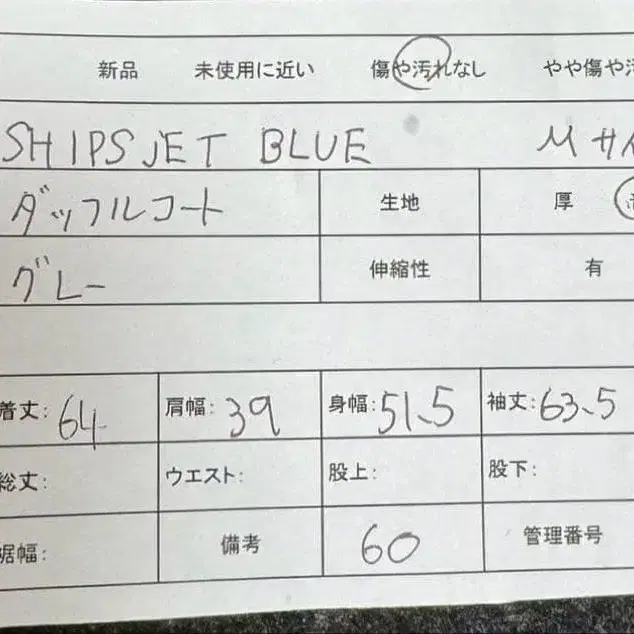 新品 未使用に近い 傷や汚れなし やや傷や汚
SHIPS JET BLUE Mサイ
ダッフルコート 生地 厚
グレー 伸縮性 有
着丈: 64 肩幅: 39 身幅: 51.5 袖丈: 63.5
総丈: ウエスト: 股上: 股下:
裾幅: 備考 60 管理番号